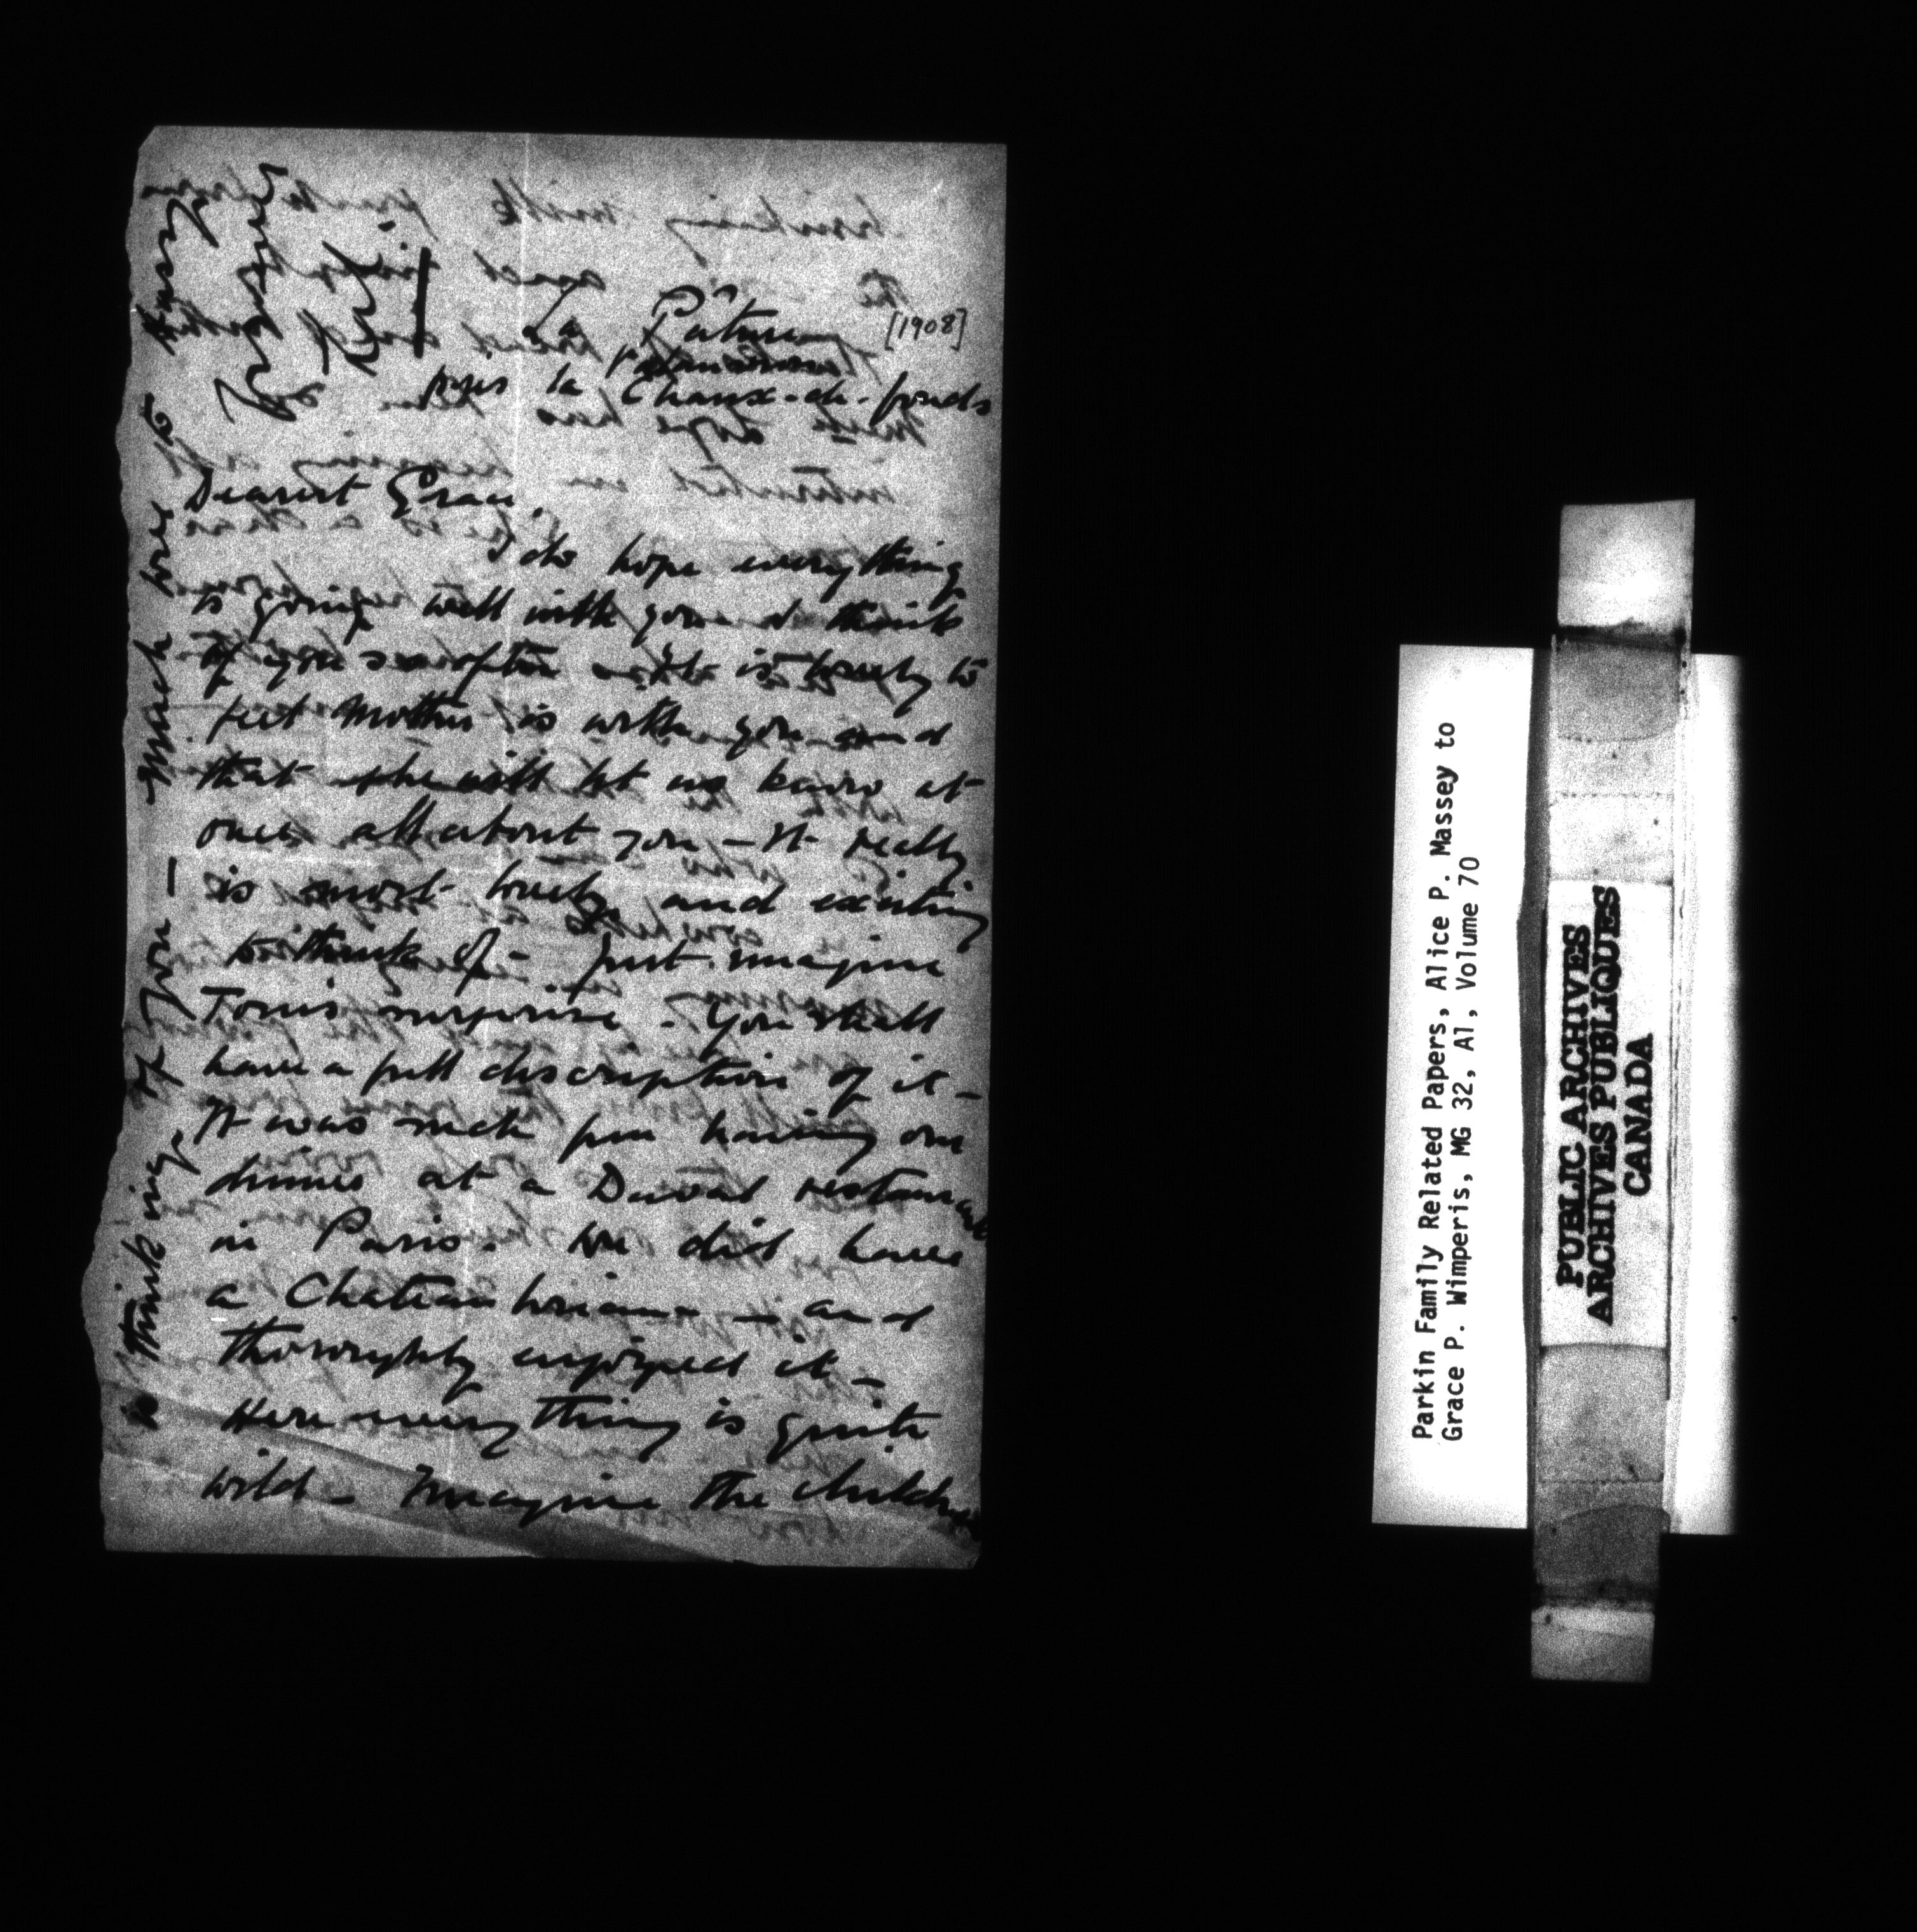 La Pâture
[1908]
près la Chaux-de-fonds
Dearest Grace.
I do hope everything
is going well with you I think
of you so often - It is lovely to
feel Mother is with you and
that she will let us know at
once all about you - It really
is most lovely and exciting
to think of - Just imagine
Tom's surprise. You shall
have a full description of it -
It was such fun having our
dinner at a Duval restaurant
in Paris. We did have
a Chateaubriand - and
thoroughly enjoyed it -
Here everything is quite
wild - Imagine the children
is thinking of you - Much love to Harry
Parkin Family Related Papers, Alice P. Massey to
Grace P. Wimperis, MG 32, A1, Volume 70
PUBLIC ARCHIVES
ARCHIVES PUBLIQUES
CANADA